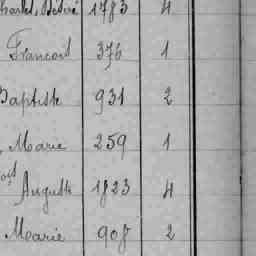 Charles, Désiré 1783 4
François 376 1
Baptiste 931 2
, Marie 259 1
Auguste 1823 4
Marie 908 2